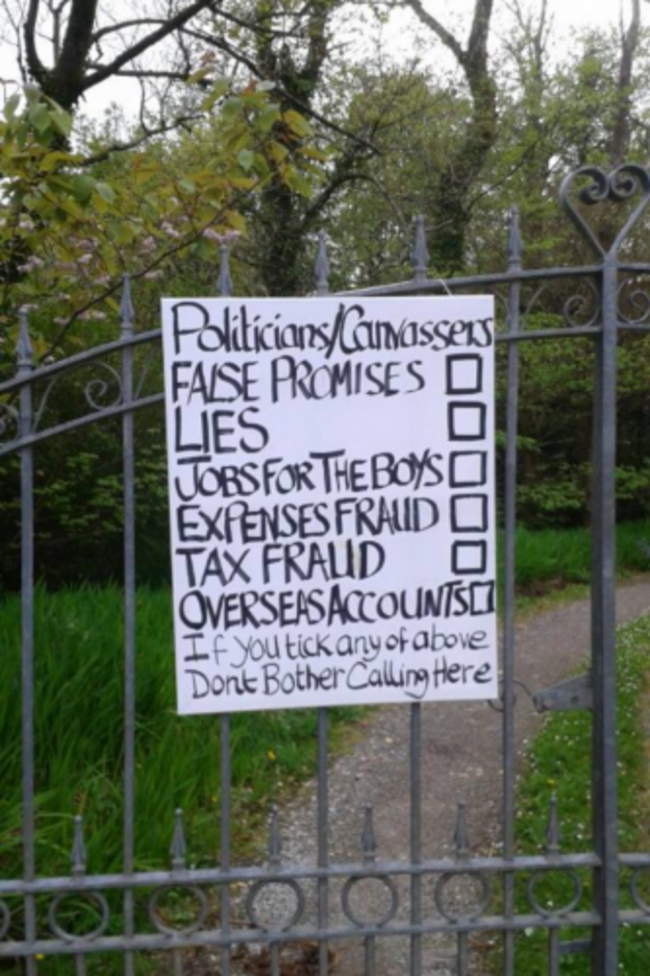 Politicians/Canvassers
FALSE PROMISES
LIES
JOBS FOR THE BOYS
EXPENSES FRAUD
TAX FRAUD
OVERSEAS ACCOUNTS
If you tick any of above
Dont Bother Calling Here